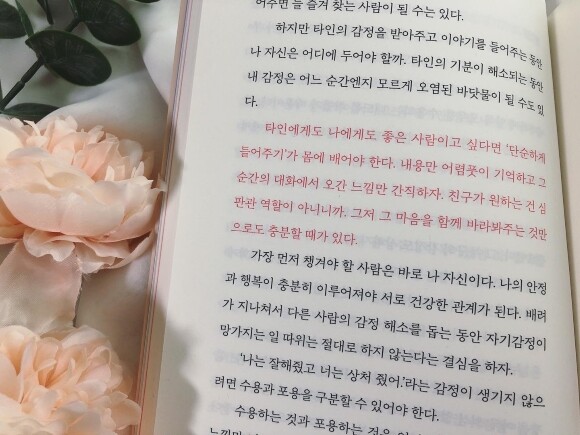 어주면 늘 즐겨 찾는 사람이 될 수는 있다.
하지만 타인의 감정을 받아주고 이야기를 들어주는 동안
나 자신은 어디에 두어야 할까. 타인의 기분이 해소되는 동안
내 감정은 어느 순간엔지 모르게 오염된 바닷물이 될 수도 있
다.
타인에게도 나에게도 좋은 사람이고 싶다면 '단순하게
들어주기'가 몸에 배어야 한다. 내용만 어렴풋이 기억하고 그
순간의 대화에서 오간 느낌만 간직하자. 친구가 원하는 건 심
판관 역할이 아니니까. 그저 그 마음을 함께 바라봐주는 것만
으로도 충분할 때가 있다.
가장 먼저 챙겨야 할 사람은 바로 나 자신이다. 나의 안정
과 행복이 충분히 이루어져야 서로 건강한 관계가 된다. 배려
가 지나쳐서 다른 사람의 감정 해소를 돕는 동안 자기감정이
망가지는 일 따위는 절대로 하지 않는다는 결심을 하자.
'나는 잘해줬고 너는 상처 줬어.'라는 감정이 생기지 않으
려면 수용과 포용을 구분할 수 있어야 한다.
수용하는 것과 포용하는 것은